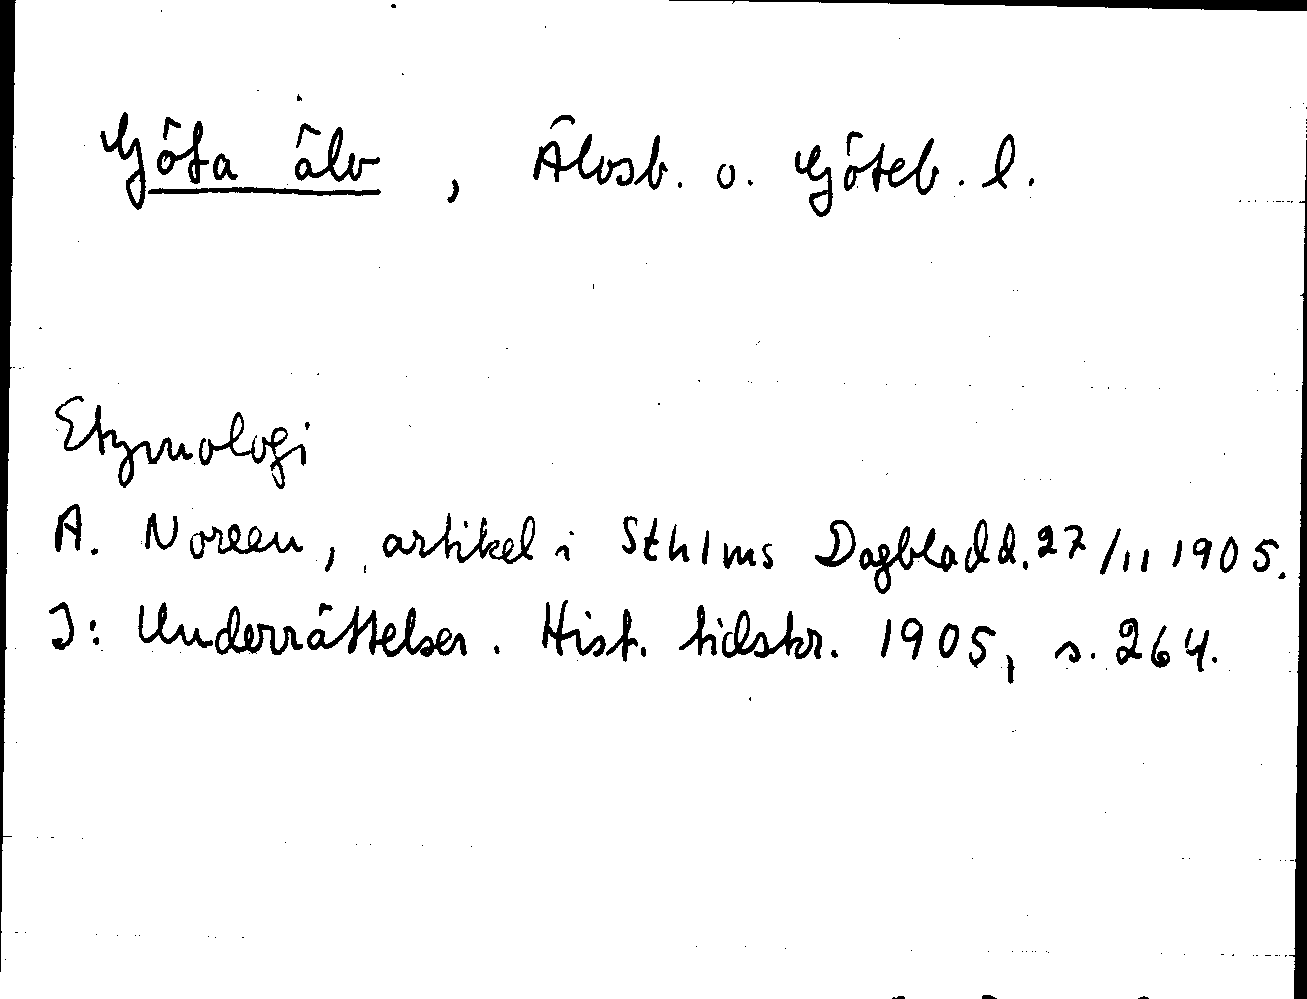 Göta älv, Älvsb. o. Göteb. l.
Etymologi
A. Noreen, artikel i Sthlms Dagblad d. 27/11 1905.
I: Underrättelser. Hist. tidskr. 1905, s. 264.